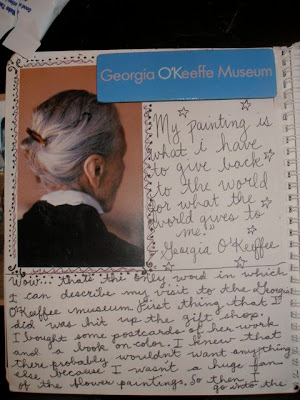 Georgia O'Keeffe Museum
"My painting is
what i have
to give back
to the world
for what the
world gives to
me."
-Georgia O'Keeffee
Wow... thats the only word in which
I can describe my visit to the Georgia
O'Keeffe museum. First thing that I
did was hit up the gift shop.
I bought some postcards of her work
and a book on color. I knew that
there probably wouldn't want anything
else because I wasn't a huge fan
of the flower paintings. So then I
go into the